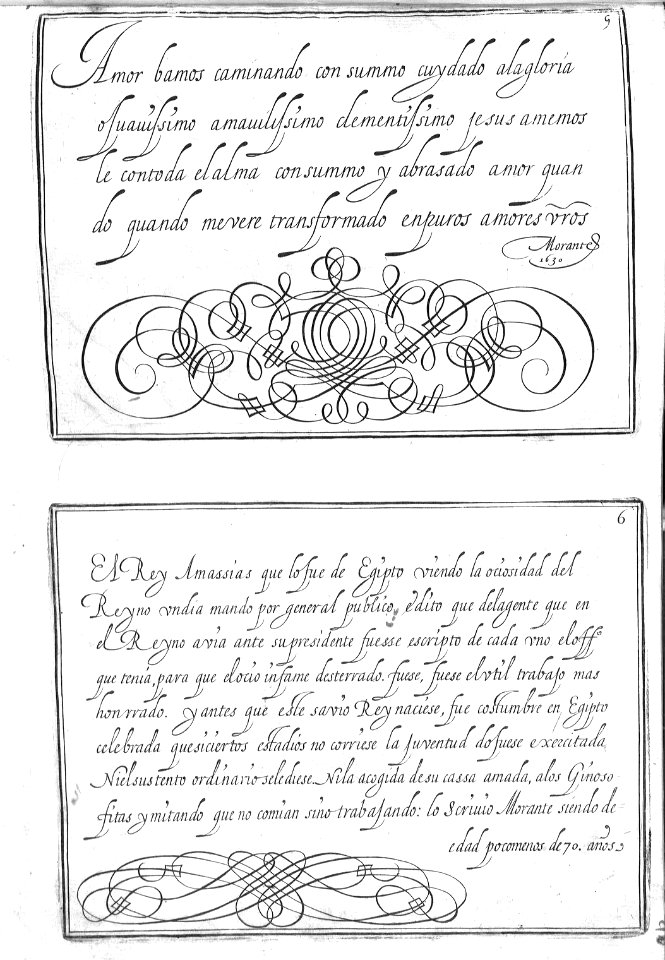 5
Amor bamos caminando con summo cuydado alagloria
osuauissimo amauilissimo clementissimo jesus amemos
le contoda el alma consummo y abrasado amor quan
do quando mevere transformado enpuros amores vr̃os
Morante
1630
6
El Rey Amassias que lo fue de Egipto viendo la ociosidad del
Reyno vndia mando por general publico, edito que delagente que en
el Reyno avia ante supresidente fuesse escripto de cada vno el offº
que tenia, para que elocio infame desterrado. fuese, fuese el vtil trabajo mas
honrrado. y antes que este savio Rey naciese, fue costumbre en Egipto
celebrada que siciertos estadios no corriese la juventud do fuese exercitada
Niel sustento ordinario selediese. Nila acogida de su cassa amada, alos Ginoso
fitas ymitando que no comian sino trabajando: lo Scriuio Morante siendo de
edad pocomenos de 70. años